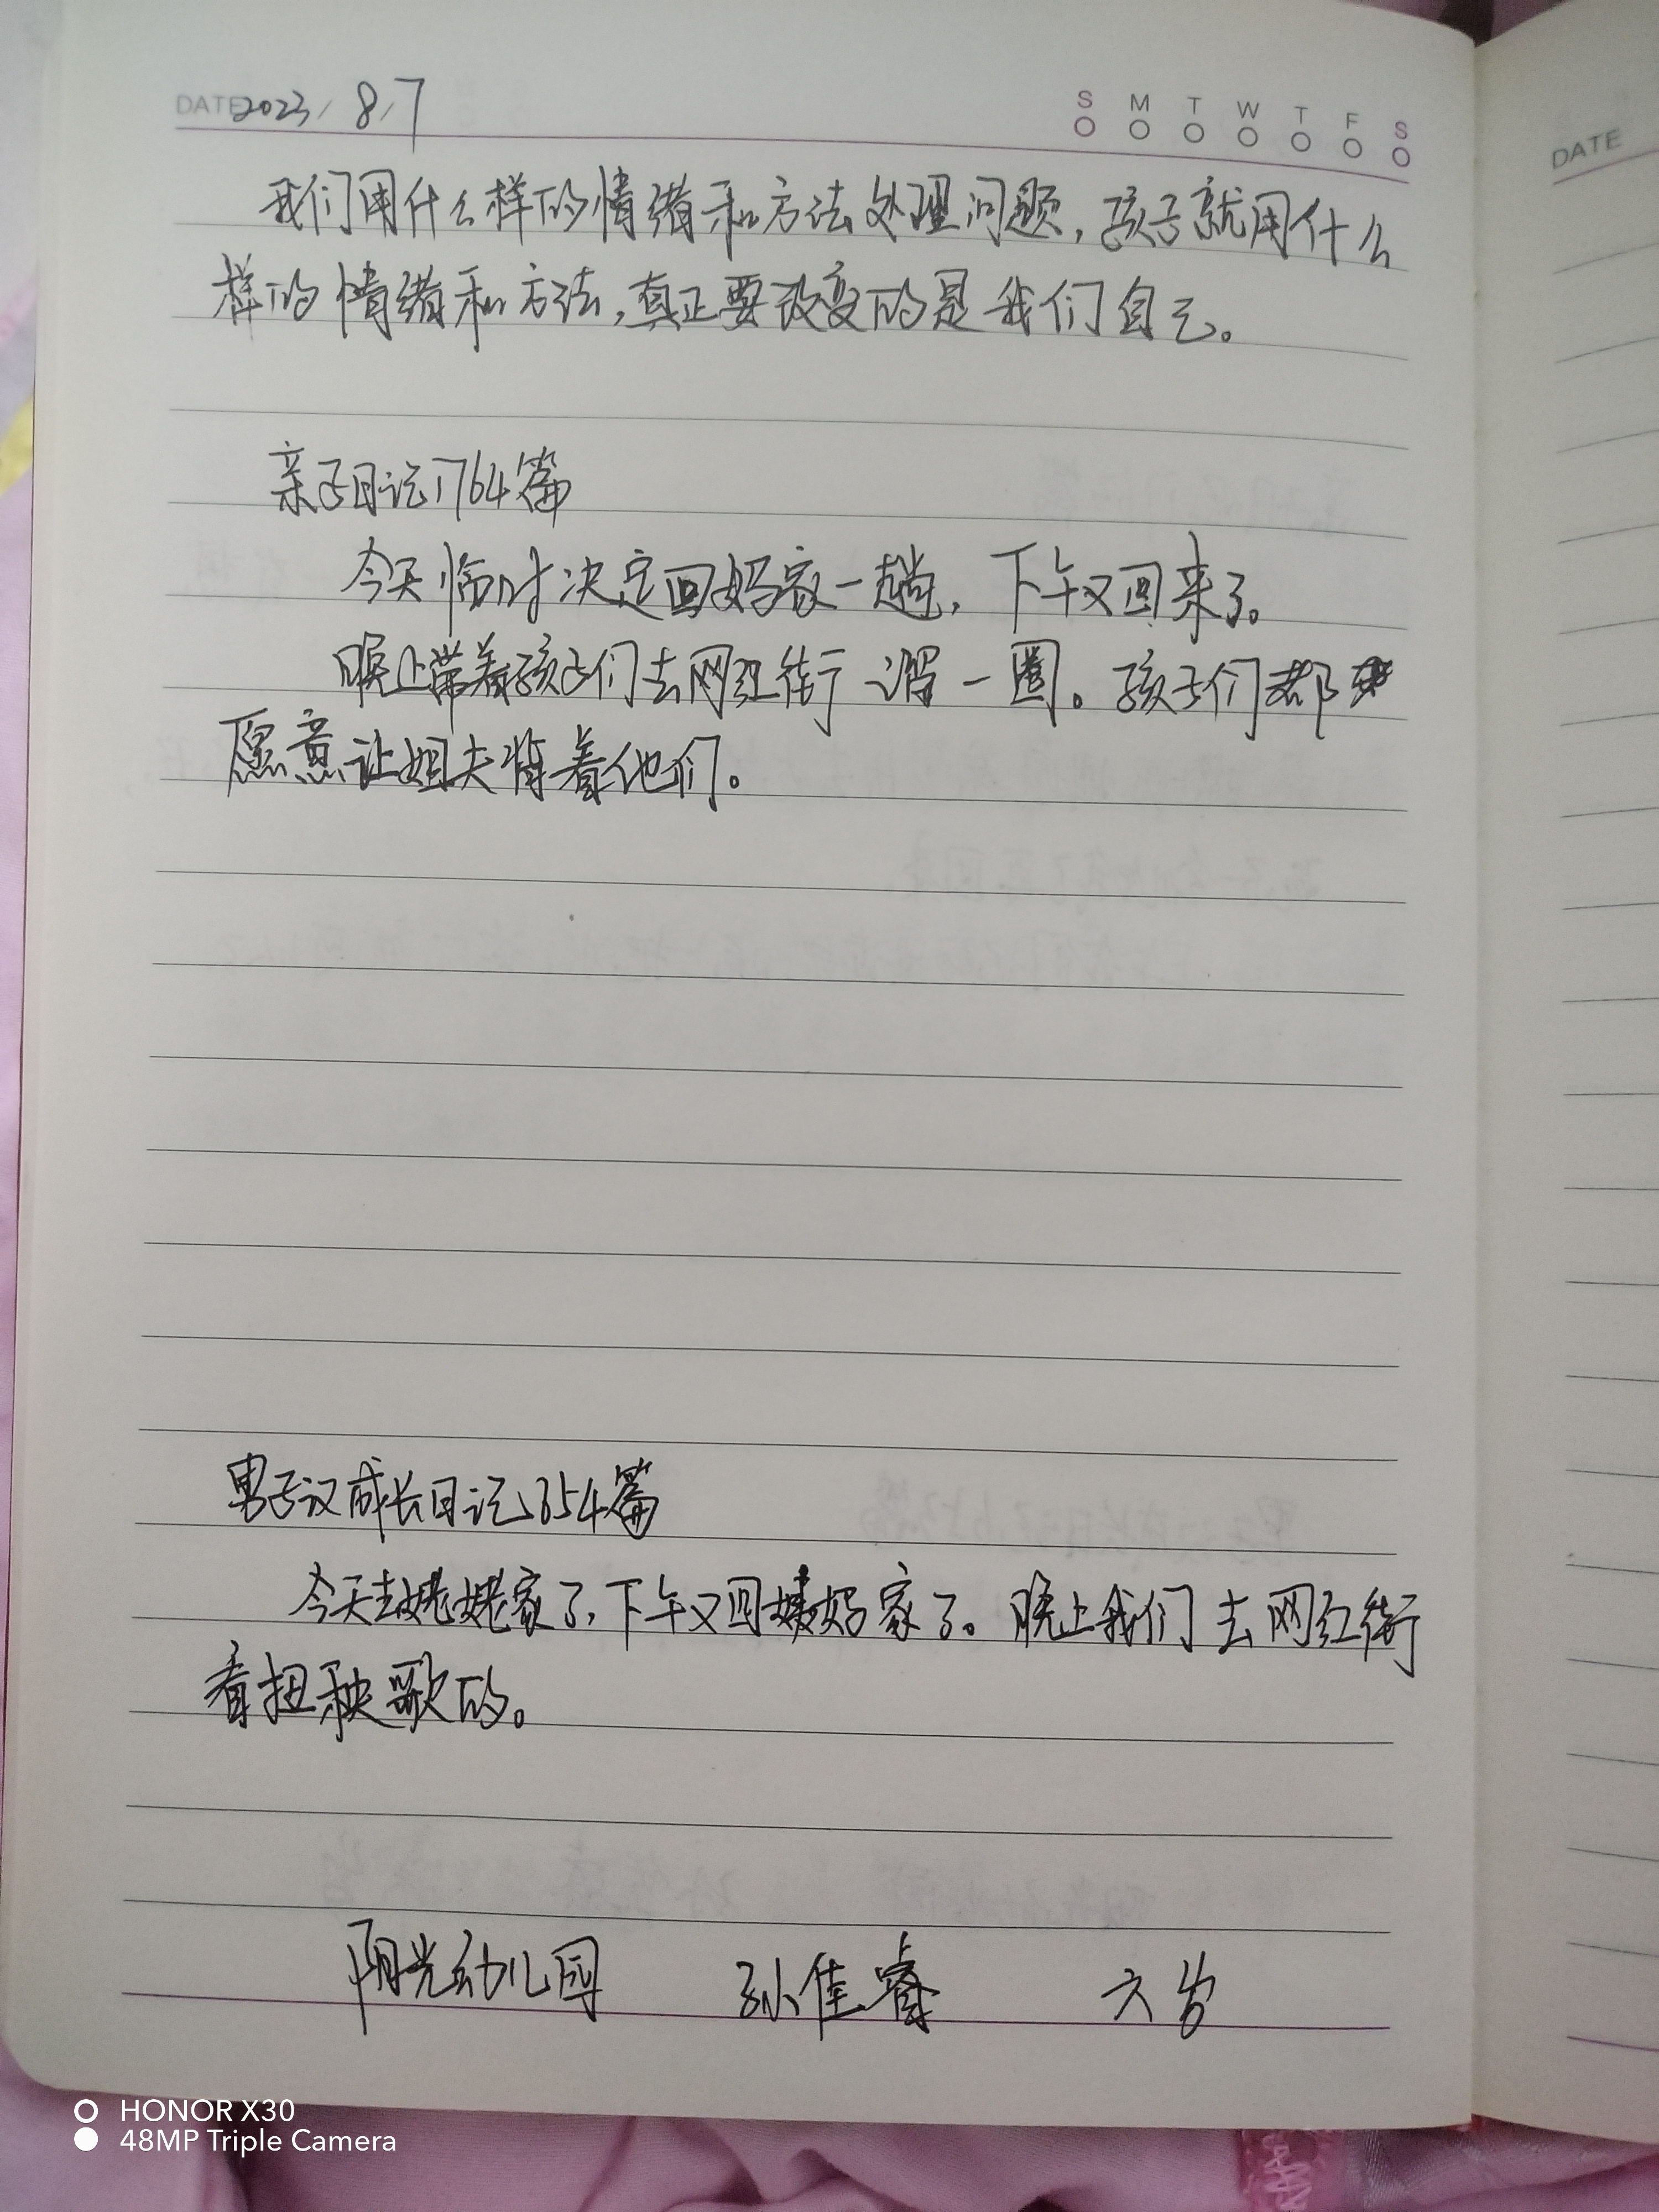 DATE 2023/8/7
S M T W T F S
我们用什么样的情绪和方法处理问题，孩子就用什么
样的情绪和方法，真正要改变的是我们自己。
亲子日记1764篇
今天临时决定回妈家一趟，下午又回来了。
晚上带着孩子们去网红街溜一圈。孩子们都
愿意让姐夫背着他们。
男子汉成长日记1654篇
今天去姥姥家了，下午又回姨妈家了。晚上我们去网红街
看扭秧歌的。
阳光幼儿园 孙佳睿 六岁
DATE
HONOR X30
48MP Triple Camera